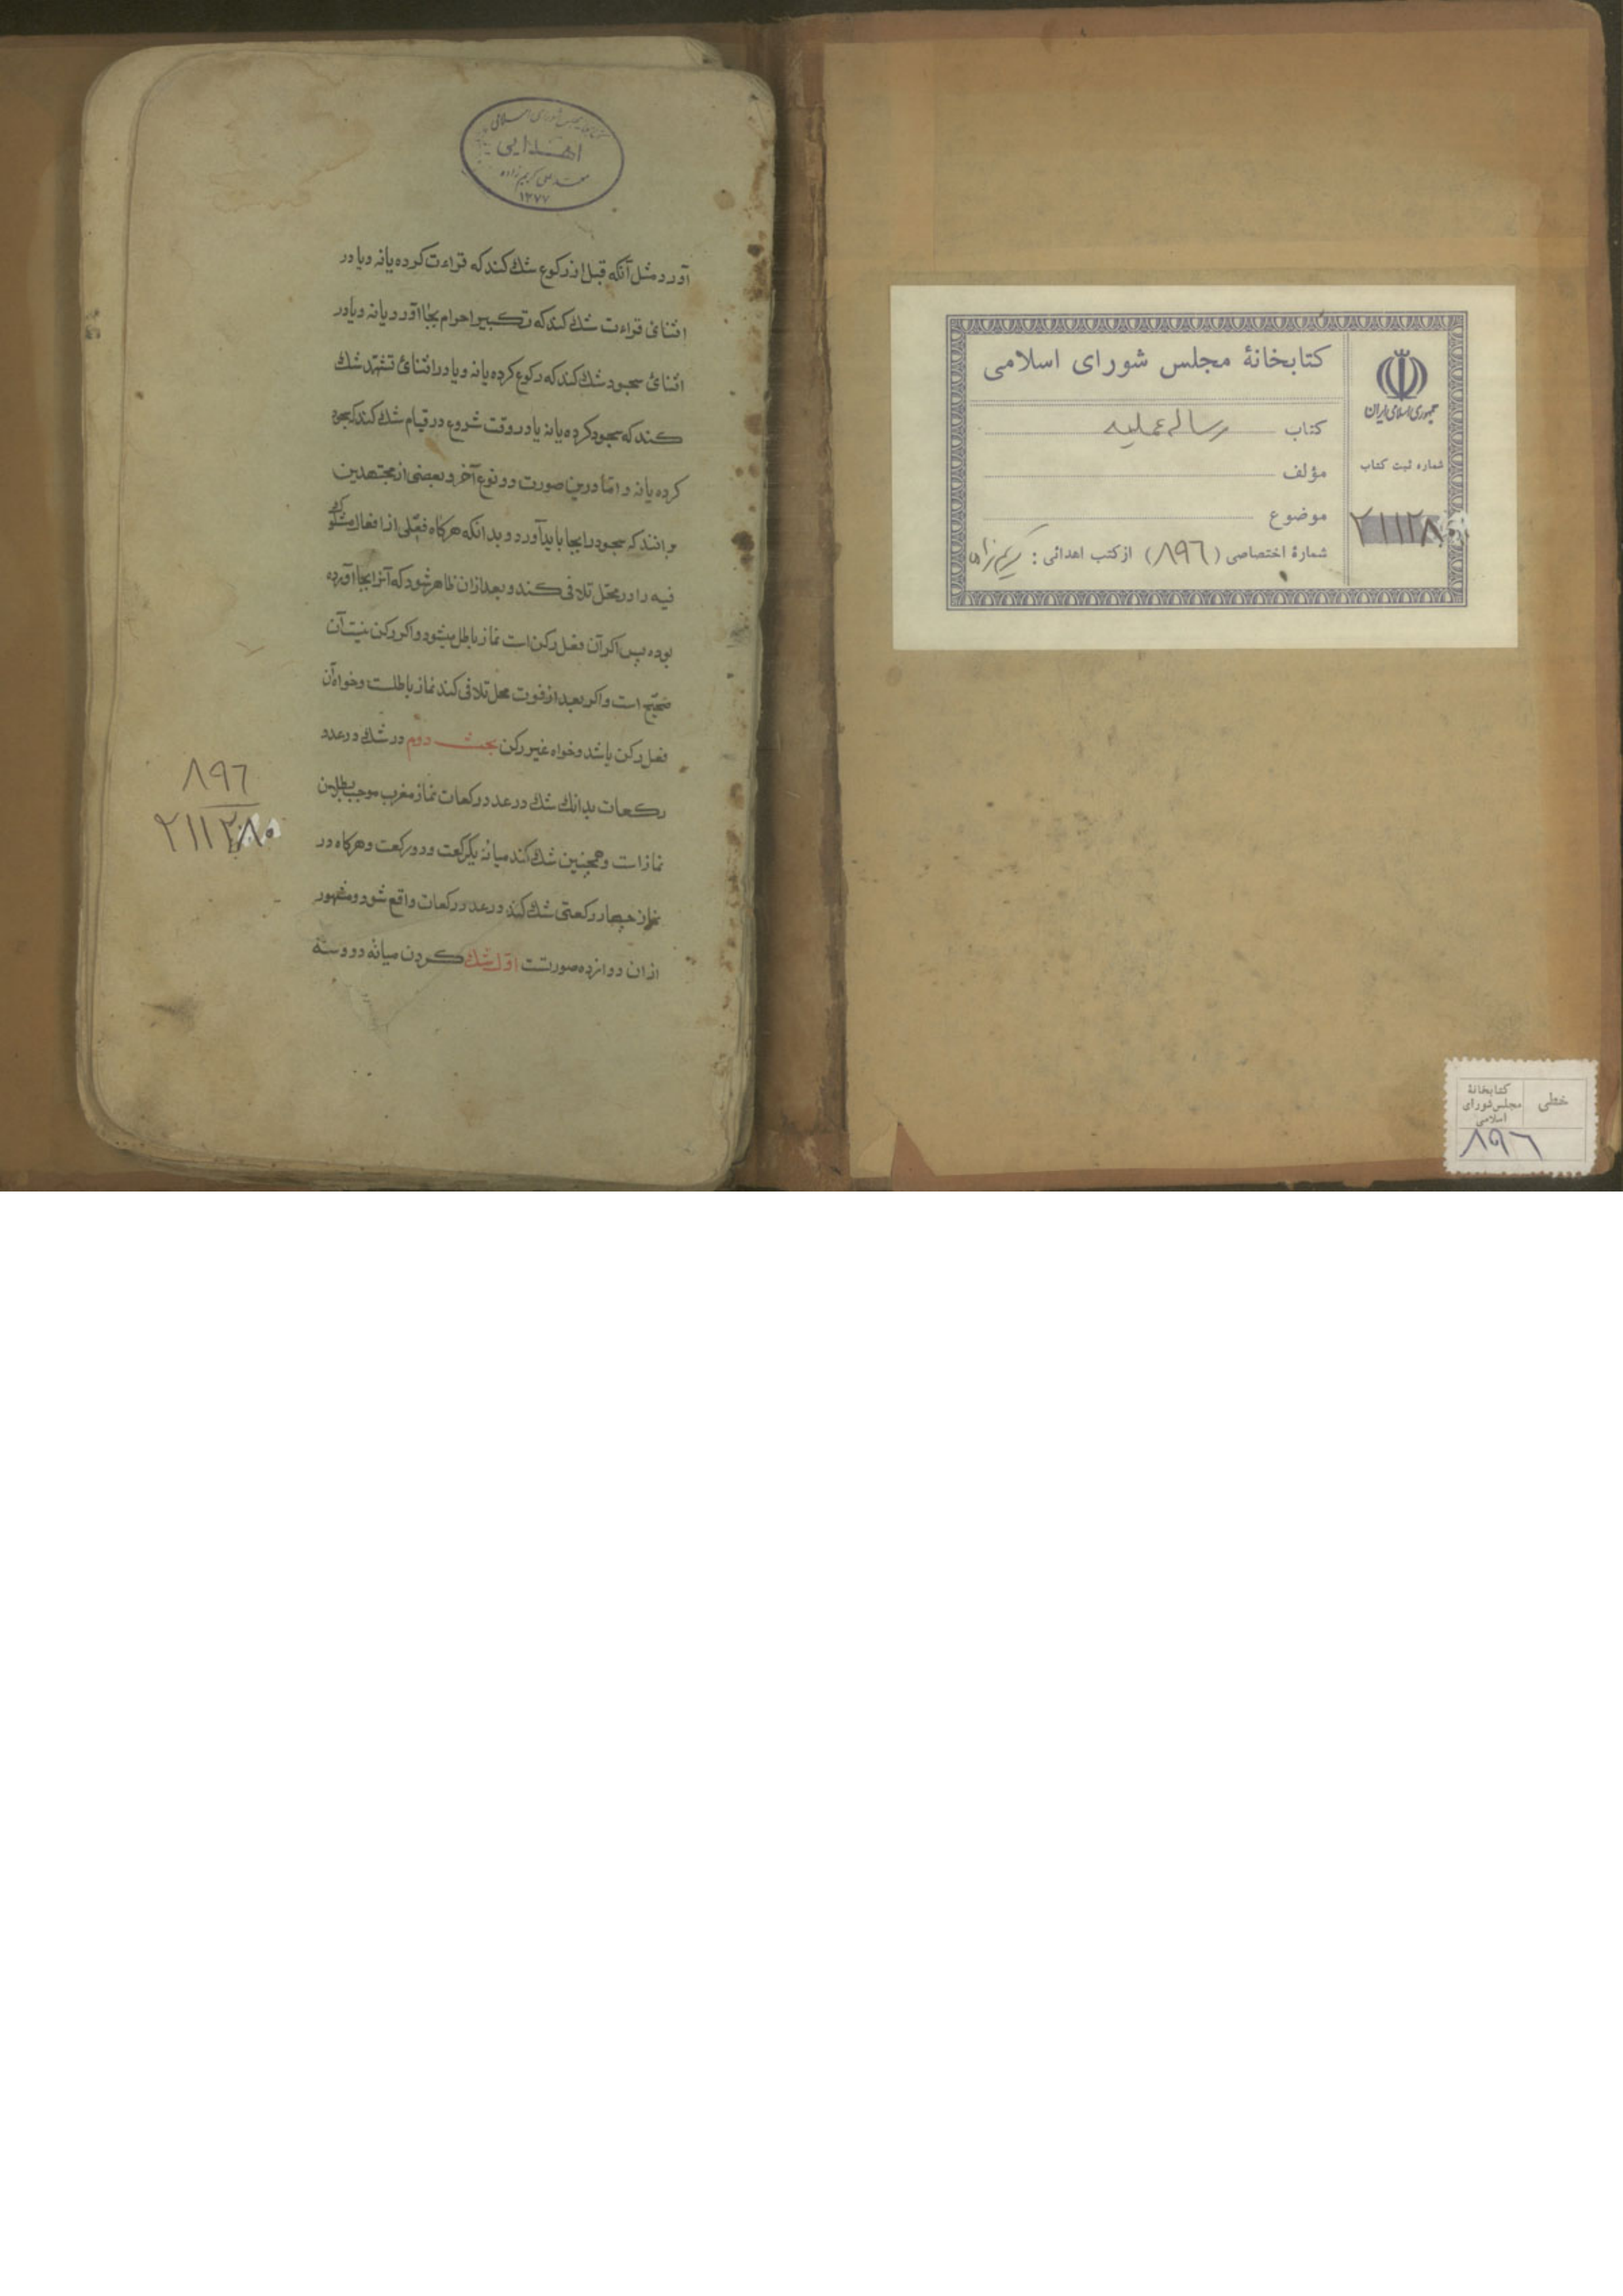 کتابخانهٔ مجلس شورای اسلامی
کتاب رساله عملیه
مؤلف
موضوع
شمارهٔ اختصاصی (٨٩٦) از کتب اهدائی : کریم زاده
جمهوری اسلامی ایران
شماره ثبت کتاب
٢١١٢٨٠
خطی
کتابخانهٔ
مجلس شورای
اسلامی
٨٩٦
کتابخانه مجلس شورای اسلامی
اهدایی
محمد علی کریم زاده
١٣٧٧
آورد مثل آنکه قبل از رکوع شك کند که قراءت کرده یا نه و یا در
اثنائ قراءت شك کند که تکبیر احرام بجا آورد یا نه و یا در
اثنائ سجود شك کند که رکوع کرده یا نه و یا در اثنائ تشهّد شك
کند که سجود کرده یا نه یا در وقت شروع در قیام شك کند که سجود
کرده یا نه و امّا درین صورت دو نوع آخر و بعضی از مجتهدین
برانند که سجود را بجا باید آورد و بدانکه هرکاه فعلی از افعال مشکوك
فیه را در محلّ تلافی کند و بعد ازان ظاهر شود که آنرا بجا آورده
بوده پس اکر آن فعل رکن است نماز باطل میشود و اکر رکن نیست آن
صحیح است و اکر بعد از فوت محل تلافی کند نماز باطلست و خواه آن
فعل رکن باشد و خواه غیر رکن بحث دوم در شك در عدد
رکعات بدانك شك در عدد رکعات نماز مغرب موجب بطلان
نماز است و همچنین شك کند میانه یکرکعت و دو رکعت و هرکاه در
نماز چهار رکعتی شك کند در عدد رکعات واقع شود و مشهور
از ان دوازده صورتست اوّل شك کردن میانه دو و سه
٨٩٦
٢١١٢٨٠